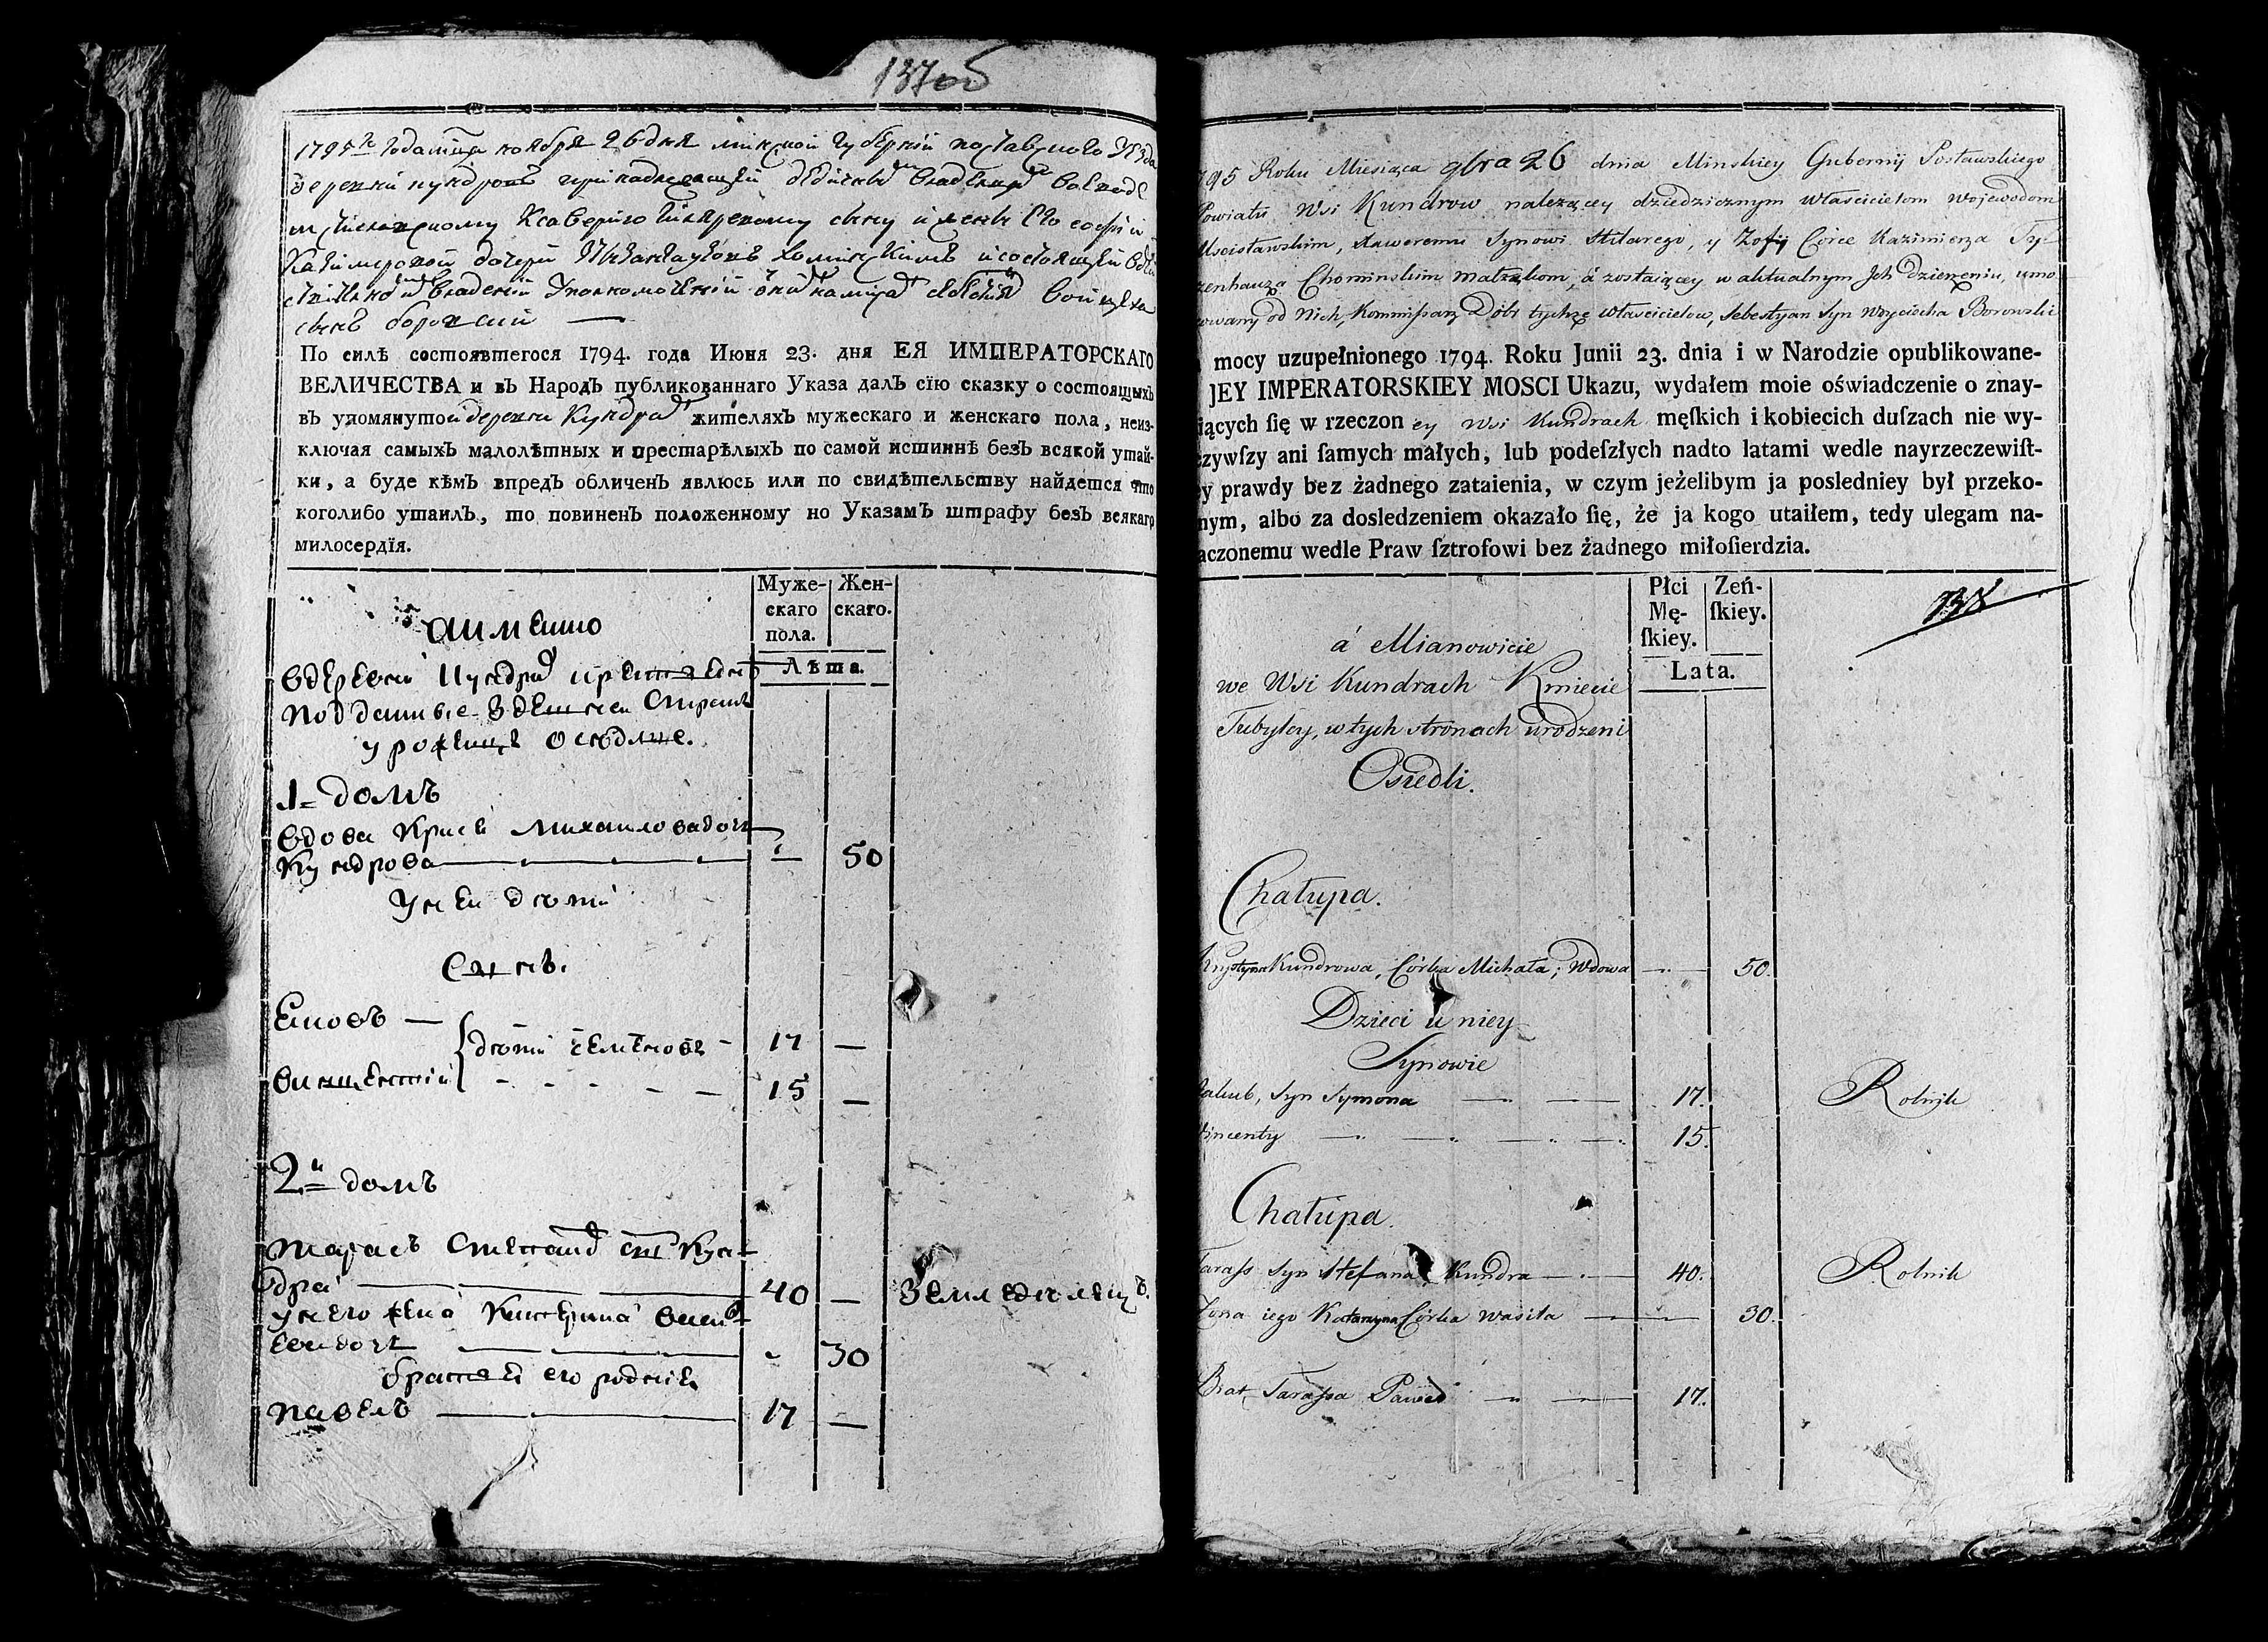 137об
1795 года м͠ца ноября 26 дня минской губернии поставского уезда
деревни кундровъ принадлежащей
Ксаверию сыну и жены его софии
Казимеровой дочери хоминскимъ и состоящей
сынъ
По силѣ состоявшегося 1794. года Июня 23. дня ЕЯ ИМПЕРАТОРСКАГО
ВЕЛИЧЕСТВА и въ Народъ публикованнаго Указа далъ сїю сказку о состоящыхъ
въ упомянутой деревни Кундрах жителяхъ мужескаго и женскаго пола, неиз-
ключая самыхъ малолѣтных и престарѣлыхъ по самой истиннѣ безъ всякой утай-
ки, а буде кѣмъ впредъ обличенъ явлюсь или по свидѣтельству найдется что
коголибо утаилъ, то повиненъ положенному по Указамъ штрафу безъ всякаго
милосердїя.
Муже-
скаго
пола.
Жен-
скаго.
Лѣта.
аимянно
вдеревни Кундрах
подданные здешнеи стороне
уроженцы оседлые.
1= домъ
вдова Крися михаиловадочь
Кундрова — — 50
Унеи дети
Сынъ.
Ековъ — дети семеновы 17 —
викщентий 15 —
2й домъ
тарасъ степанов сын Кун-
дра 40 — Земледелецъ.
унего жена Катерина васи-
левадочь — 30
братья его родние
павелъ 17 —
795 Roku Miesiąca 9bra 26 dnia Minskiey Gubernij Postawskiego
Powiatu Wsi Kundrow należącey dziedzicznym właścicielom Wojewodom
Mscisławskim, Xaweremu Synowi Hilarego, y Zofij Córce Kazimierza Ty-
zenhauza Chominskim małżąkom, á zostaiącey w aktualnym Jch Dzierżeniu, umo
cowany od Nich, Kommissarz Dóbr tychże właścicielow, Sebestyan Syn Woyciecha Borowski
mocy uzupełnionego 1794. Roku Junii 23. dnia i w Narodzie opublikowane-
JEY IMPERATORSKIEY MOSCI Ukazu, wydałem moie oświadczenie o znay-
iących ſię w rzeczon ey Wsi Kundrach męſkich i kobiecich duſzach nie wy-
czywſzy ani ſamych małych, lub podeſzłych nadto latami wedle nayrzeczewiſt-
ey prawdy bez żadnego zataienia, w czym jeżelibym ja posledniey był przeko-
nym, albo za dosledzeniem okazało ſię, że ja kogo utaiłem, tedy ulegam na-
aczonemu wedle Praw ſztrofowi bez żadnego miłoſierdzia.
Płci
Mę-
ſkiey.
Zeń-
ſkiey.
Lata.
138
á Mianowicie
we Wsi Kundrach Kmiecie
Tubylcy, w tych stronach urodzeni
Osiedli.
Chałupa.
Krystyna Kundrowa, Córka Michała; Wdowa — 50.
Dzieci u niey
Synowie
Jakub, Syn Symona — 17. Rolnik
Wincenty — 15.
Chałupa.
Tarass Syn Stefana Kundra — 40. Rolnik
Zona iego Katarzyna Córka Wasila — 30.
Brat Tarassa Paweł — 17.